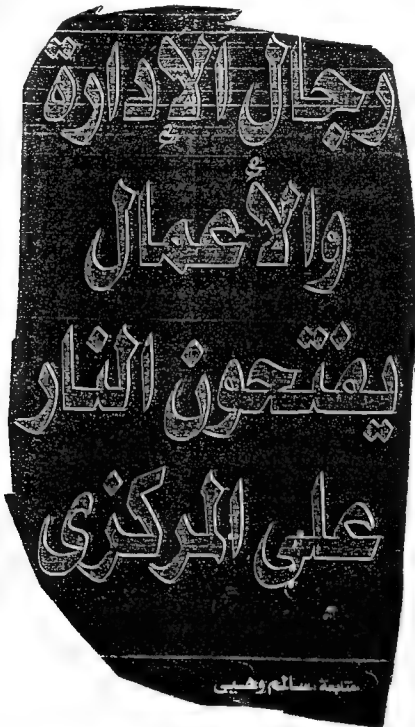 رجال الإدارة
والأعمال
يفتحون النار
على المركزى
متابعة سالم وهبى